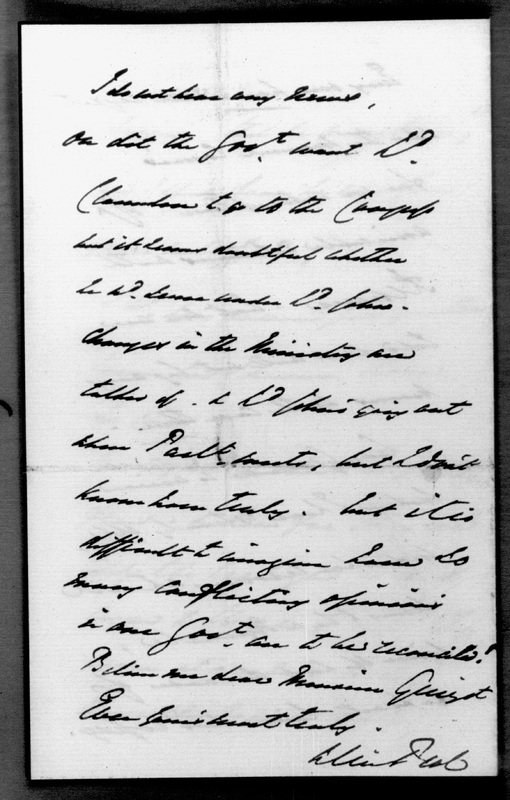 I do not hear any news,
on dit the Gov.t want L.d
Clarendon to go to the Congress
but it seems doubtful whether
he w.d serve under L.d John.
Changes in the Ministry are
talked of. & L.d John's going out
when Parl.t meets, but I don't
know how truly. but it is
difficult to imagine how so
many conflicting opinions
in one Gov.t are to be reconciled!
Believe me dear Monsieur Guizot
Ever Yours most truly.